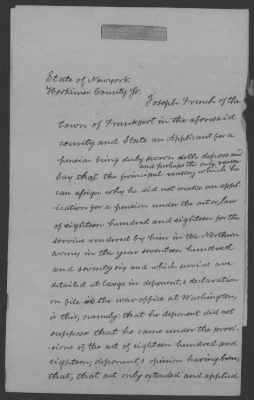 State of Newyork
Herkimer County ss.
Joseph French of the
town of Frankfort in the aforesaid
county and State an Applicant for a
pension being duly sworn doth depose and
say that the principal reason, which he
and perhaps the only reason
can assign why he did not make an appl
ication for a pension under the act or law
of eighteen hundred and eighteen for the
service rendered by him in the Northern
army in the year seventeen hundred
and seventy six and which service are
detailed at large in deponents declaration
on file in the war office at Washington,
is this; namely: that he deponent did not
suppose that he came under the provi-
sions of the act of eighteen hundred and
eighteen, deponents opinion having been,
that, that act only extended and applied